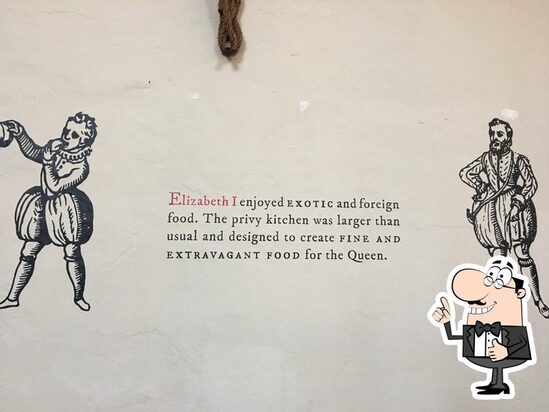 Elizabeth I enjoyed EXOTIC and foreign
food. The privy kitchen was larger than
usual and designed to create FINE AND
EXTRAVAGANT FOOD for the Queen.